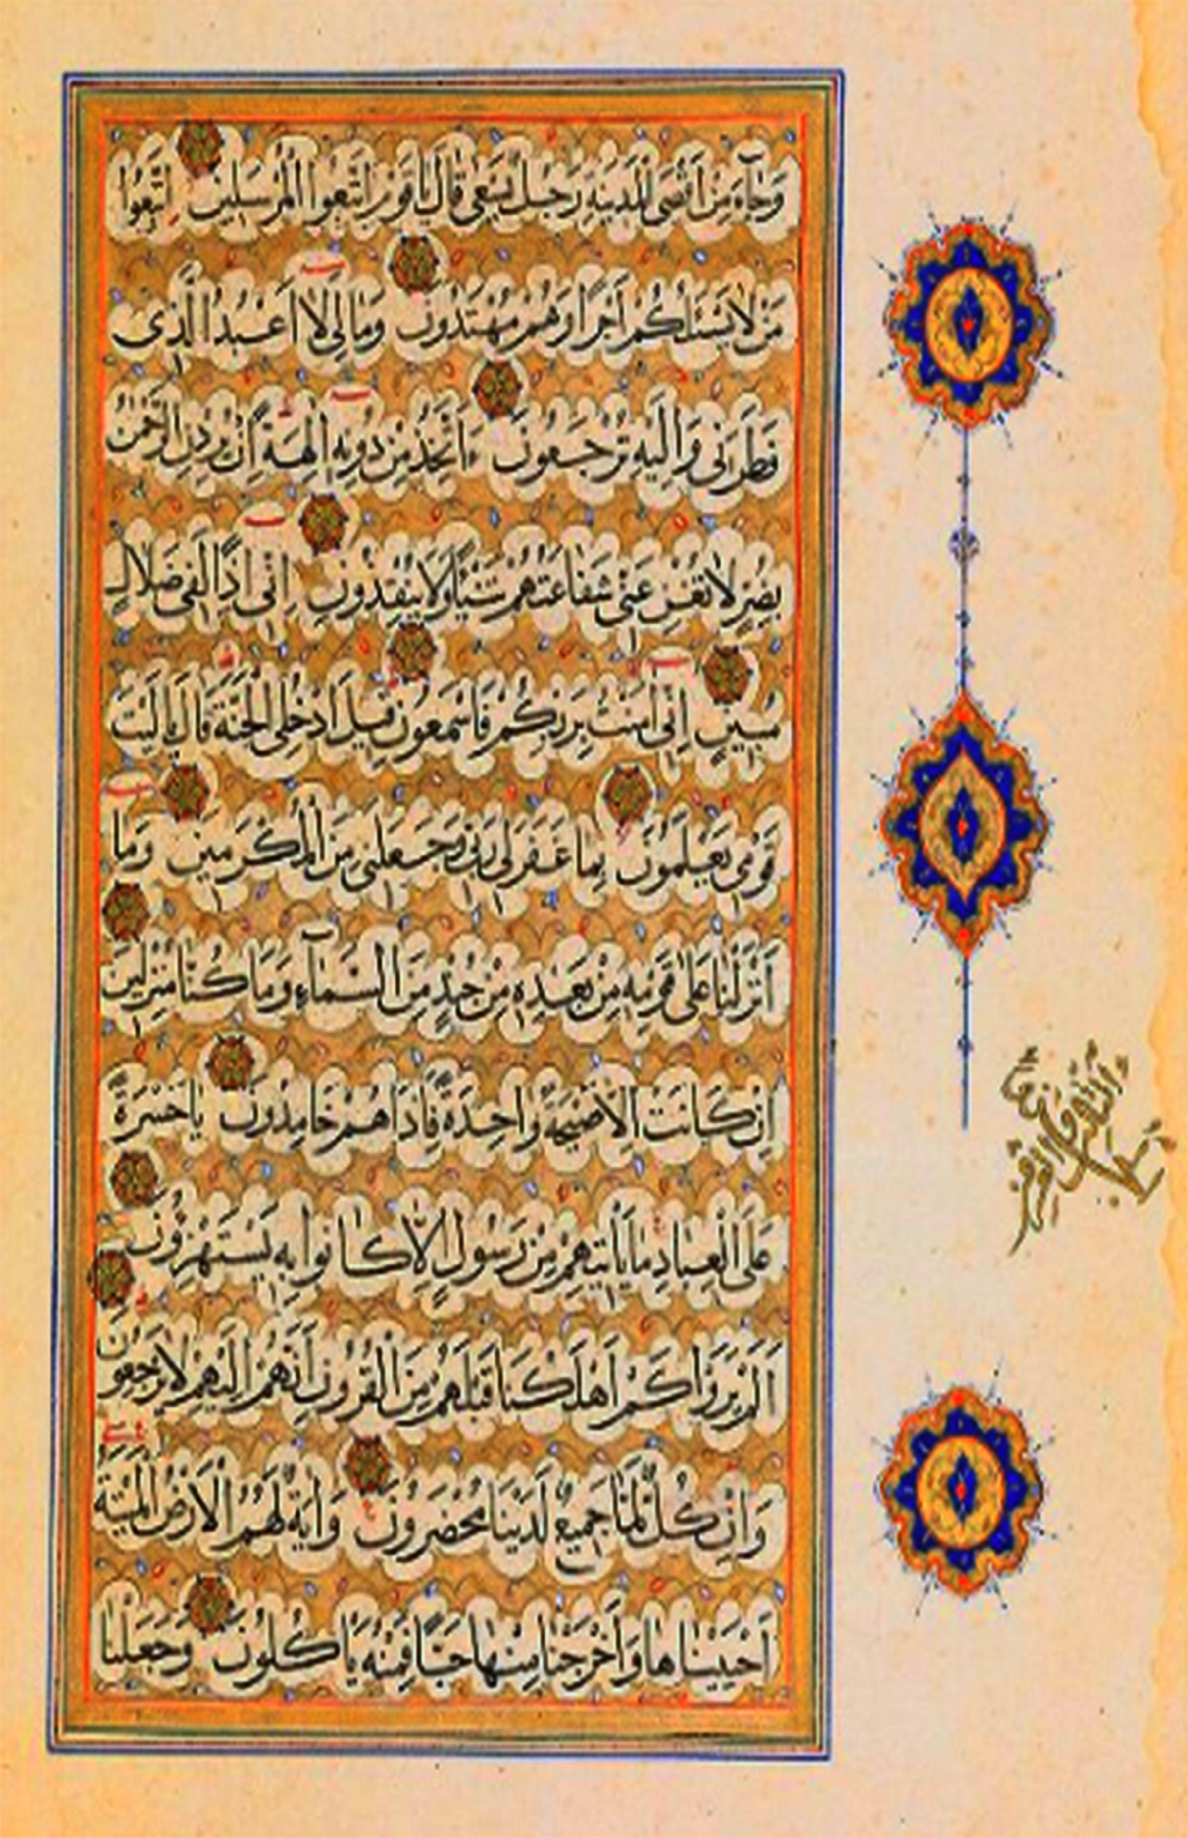 وَجَآءَ مِنْ اَقْصَى الْمَدِينَةِ رَجُلٌ يَسْعٰى قَالَ يَا قَوْمِ اتَّبِعُوا الْمُرْسَلِينَ اتَّبِعُوا
مَنْ لَا يَسْئَلُكُمْ اَجْرًا وَهُمْ مُهْتَدُونَ وَمَا لِىَ لَا اَعْبُدُ الَّذِى
فَطَرَنِى وَاِلَيْهِ تُرْجَعُونَ ءَاَتَّخِذُ مِنْ دُونِهِ اٰلِهَةً اِنْ يُرِدْنِ الرَّحْمٰنُ
بِضُرٍّ لَا تُغْنِ عَنِّى شَفَاعَتُهُمْ شَيْئًا وَلَا يُنْقِذُونِ اِنِّى اِذًا لَفِى ضَلَالٍ
مُبِينٍ اِنِّى اٰمَنْتُ بِرَبِّكُمْ فَاسْمَعُونِ قِيلَ ادْخُلِ الْجَنَّةَ قَالَ يَا لَيْتَ
قَوْمِى يَعْلَمُونَ بِمَا غَفَرَ لِى رَبِّى وَجَعَلَنِى مِنَ الْمُكْرَمِينَ وَمَا
اَنْزَلْنَا عَلٰى قَوْمِهِ مِنْ بَعْدِهِ مِنْ جُنْدٍ مِنَ السَّمَآءِ وَمَا كُنَّا مُنْزِلِينَ
اِنْ كَانَتْ اِلَّا صَيْحَةً وَاحِدَةً فَاِذَا هُمْ خَامِدُونَ يَا حَسْرَةً
عَلَى الْعِبَادِ مَا يَاْتِيهِمْ مِنْ رَسُولٍ اِلَّا كَانُوا بِهِ يَسْتَهْزِؤُنَ
اَلَمْ يَرَوْا كَمْ اَهْلَكْنَا قَبْلَهُمْ مِنَ الْقُرُونِ اَنَّهُمْ اِلَيْهِمْ لَا يَرْجِعُونَ
وَاِنْ كُلٌّ لَمَّا جَمِيعٌ لَدَيْنَا مُحْضَرُونَ وَاٰيَةٌ لَهُمُ الْاَرْضُ الْمَيْتَةُ
اَحْيَيْنَاهَا وَاَخْرَجْنَا مِنْهَا حَبًّا فَمِنْهُ يَاْكُلُونَ وَجَعَلْنَا